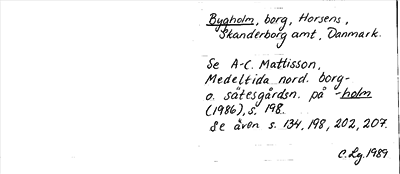 Bygholm, borg, Horsens,
Skanderborg amt, Danmark.
Se A-C. Mattisson,
Medeltida nord. borg-
o. sätesgårdsn. på -holm
(1986), s. 198.
Se även s. 134, 198, 202, 207.
C. Lg. 1989